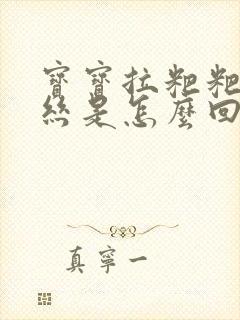 寶寶拉粑粑
絲是怎麼回
真寧一